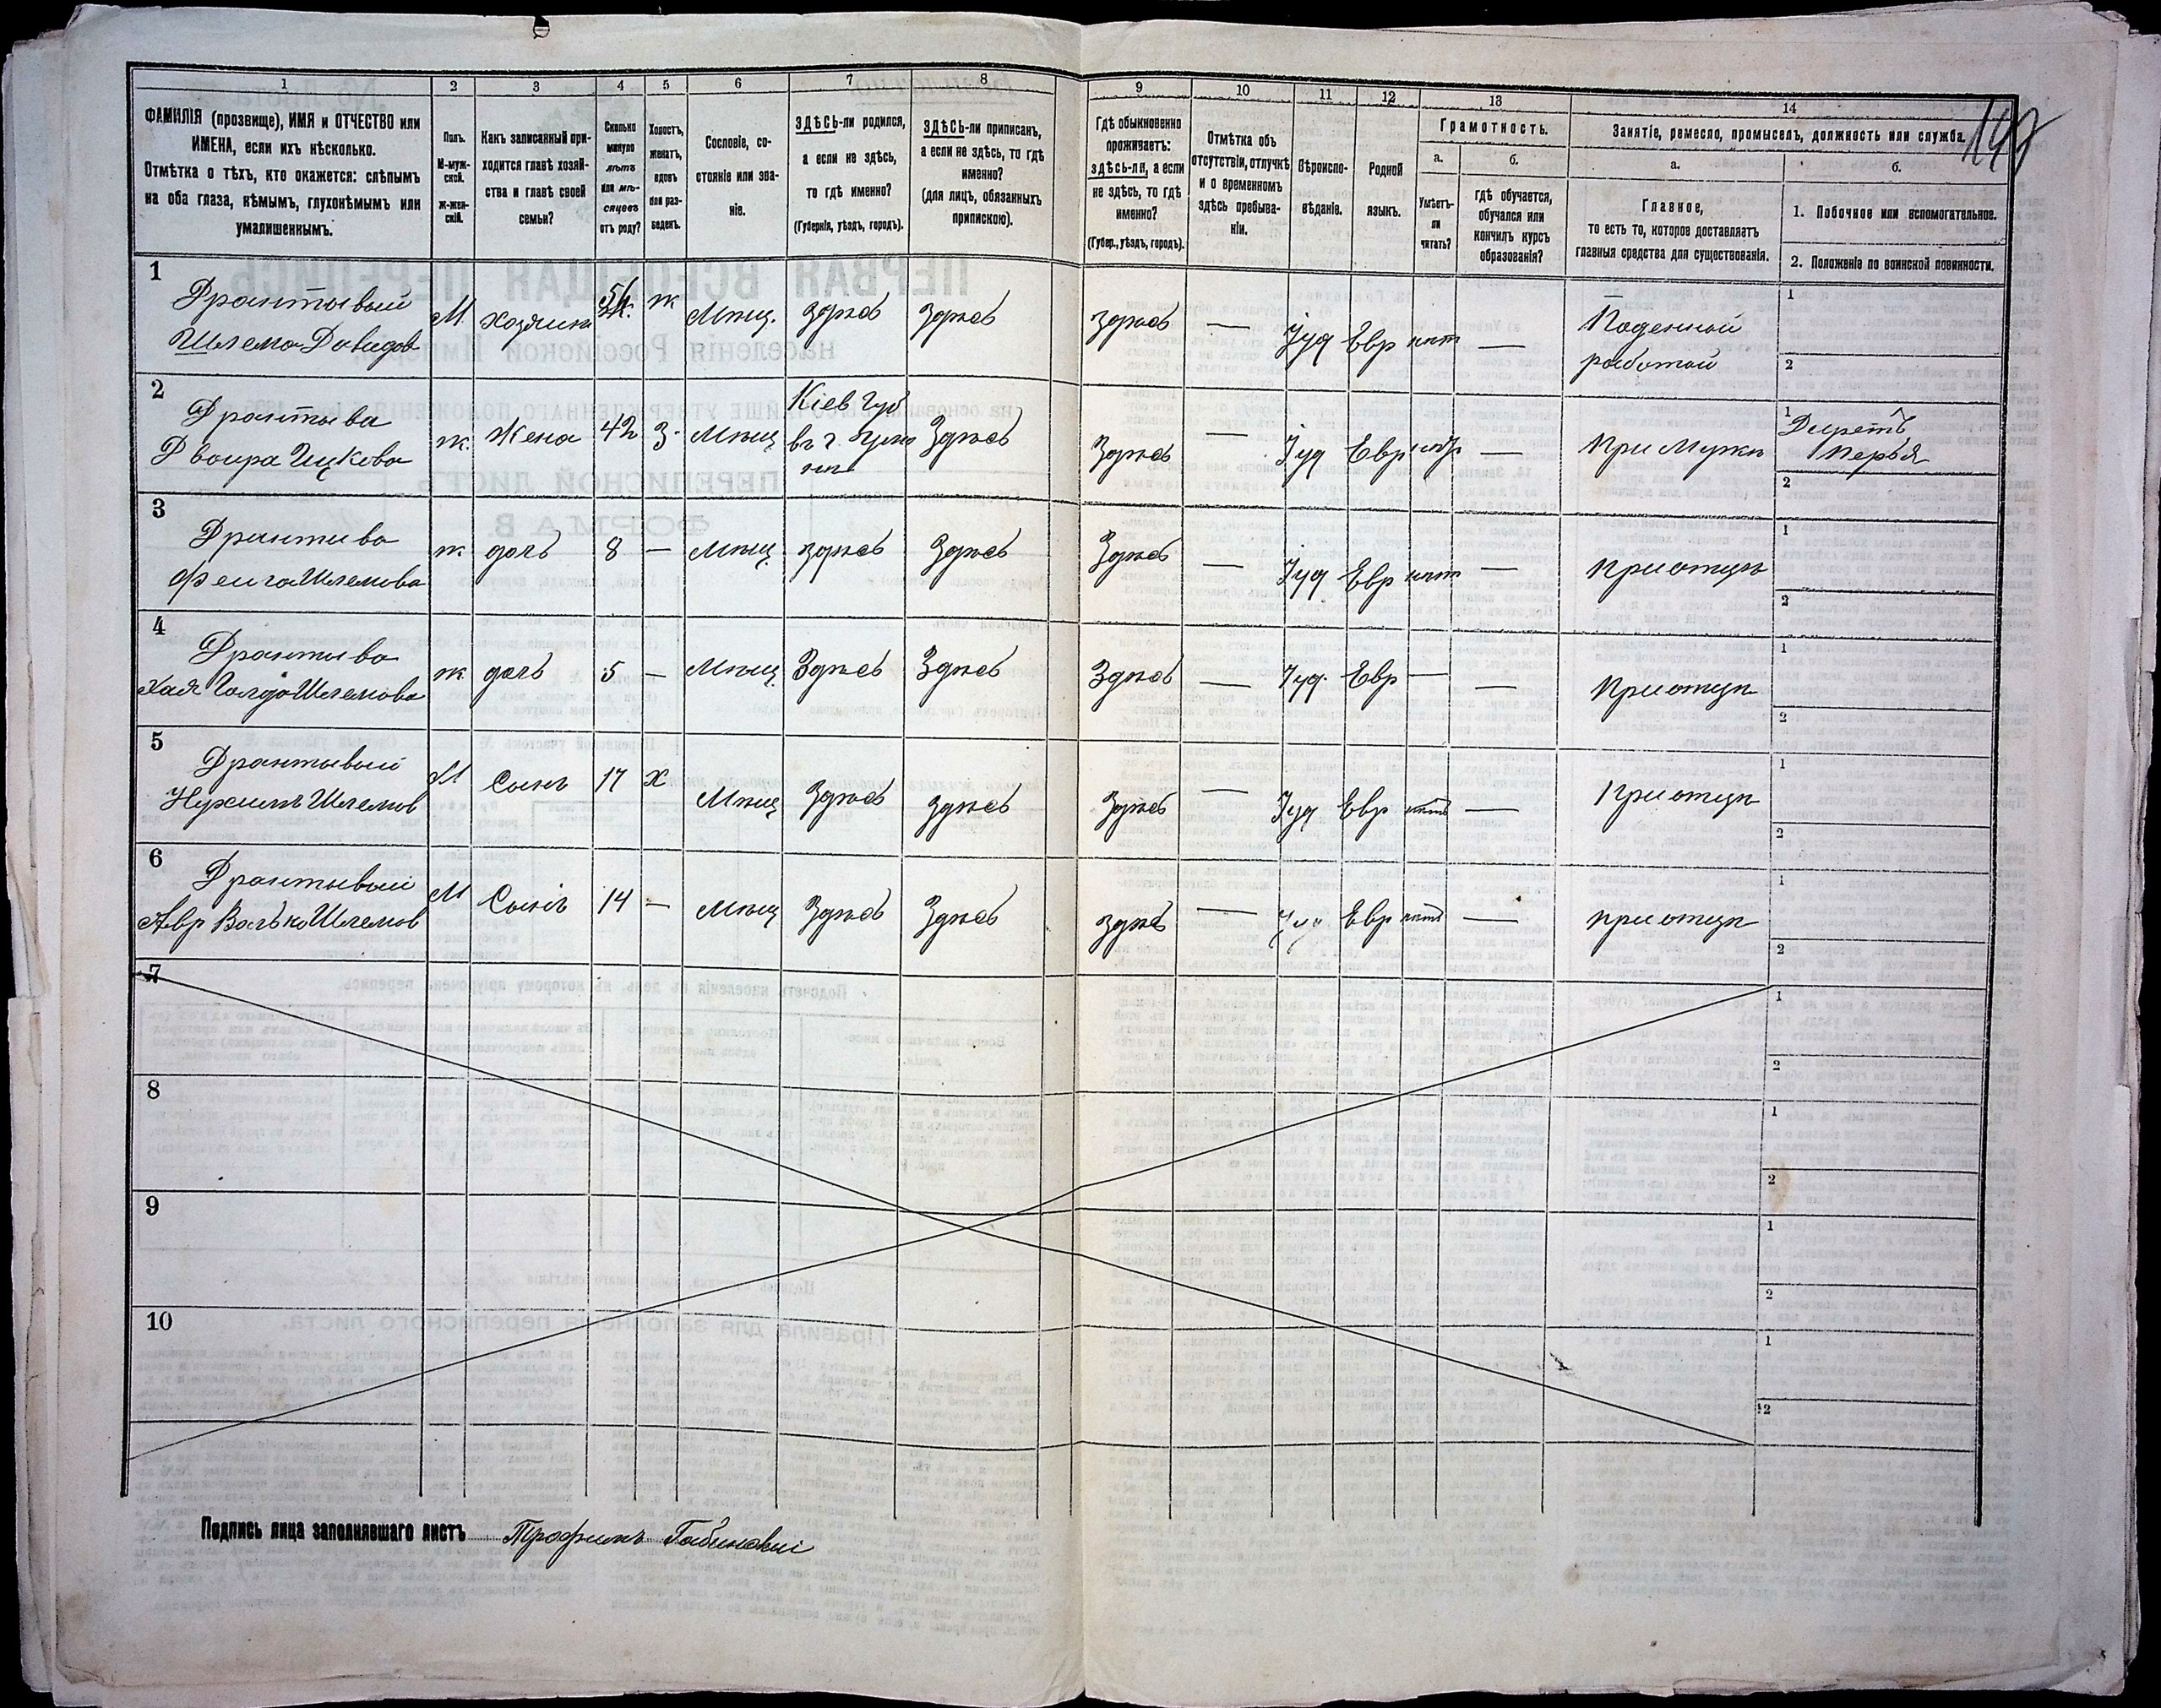 1 2 3 4 5 6 7 8 9 10 11 12 13 14
ФАМИЛІЯ (прозвище), ИМЯ и ОТЧЕСТВО или
ИМЕНА, если ихъ нѣсколько.
Отмѣтка о тѣхъ, кто окажется: слѣпымъ
на оба глаза, нѣмымъ, глухонѣмымъ или
умалишеннымъ.
Полъ.
М-муж-
ской.
Ж-жен-
скій.
Какъ записанный при-
ходится главѣ хозяй-
ства и главѣ своей
семьи?
Сколько
минуло
лѣтъ
или мѣ-
сяцевъ
отъ роду?
Холостъ,
женатъ,
вдовъ
или раз-
веденъ.
Сословіе, со-
стояніе или зва-
ніе.
ЗДѢСЬ-ли родился,
а если не здѣсь,
то гдѣ именно?
(Губернія, уѣздъ, городъ).
ЗДѢСЬ-ли приписанъ,
а если не здѣсь, то гдѣ
именно?
(для лицъ, обязанныхъ
припискою).
Гдѣ обыкновенно
проживаетъ:
здѣсь-ли, а если
не здѣсь, то гдѣ
именно?
(Губер., уѣздъ, городъ).
Отмѣтка объ
отсутствіи, отлучкѣ
и о временномъ
здѣсь пребыва-
ніи.
Вѣроиспо-
вѣданіе.
Родной
языкъ.
Грамотность.
а.
Умѣетъ-
ли
читать?
б.
Гдѣ обучается,
обучался или
кончилъ курсъ
образованія?
Занятіе, ремесло, промыселъ, должность или служба.
а.
Главное,
то есть то, которое доставляетъ
главныя средства для существованія.
б.
1. Побочное или вспомогательное.
2. Положеніе по воинской повинности.
1
Драптывый
Шлема Давидов
М. хозяинъ 54 ж Мѣщ. здѣсь здѣсь здѣсь — Іуд Евр нѣт —
Поденной
работой
1
2
2
Драптыва
Двойра Ицкова
ж. Жена 42 З. Мѣщ
Кіев Губ
Здѣсь Здѣсь — Іуд Евр — При Мужѣ
1
Дерет
перья
2
3
Драптыва
Фейга Шлемова
ж дочь 8 — Мѣщ. здѣсь Здѣсь Здѣсь — Іуд Евр нѣт — При отцѣ
1
2
4
Драптыва
Хая Голда Шлемова
ж дочь 5 — Мѣщ. Здѣсь Здѣсь Здѣсь — Іуд. Евр — — При отцѣ
1
2
5
Драптывый
Нухимъ Шлемов
М Сынъ 17 Х Мѣщ Здѣсь здѣсь Здѣсь — Іуд Евр нѣтъ — При отцѣ
1
2
6
Драптывый
Авр Волько Шлемов
М Сынъ 14 — Мѣщ Здѣсь Здѣсь здѣсь — Іуд Евр нѣтъ — при отцѣ
1
2
7
1
2
8
1
2
9
1
2
10
1
2
Подпись лица заполнявшаго листъ Трофимъ